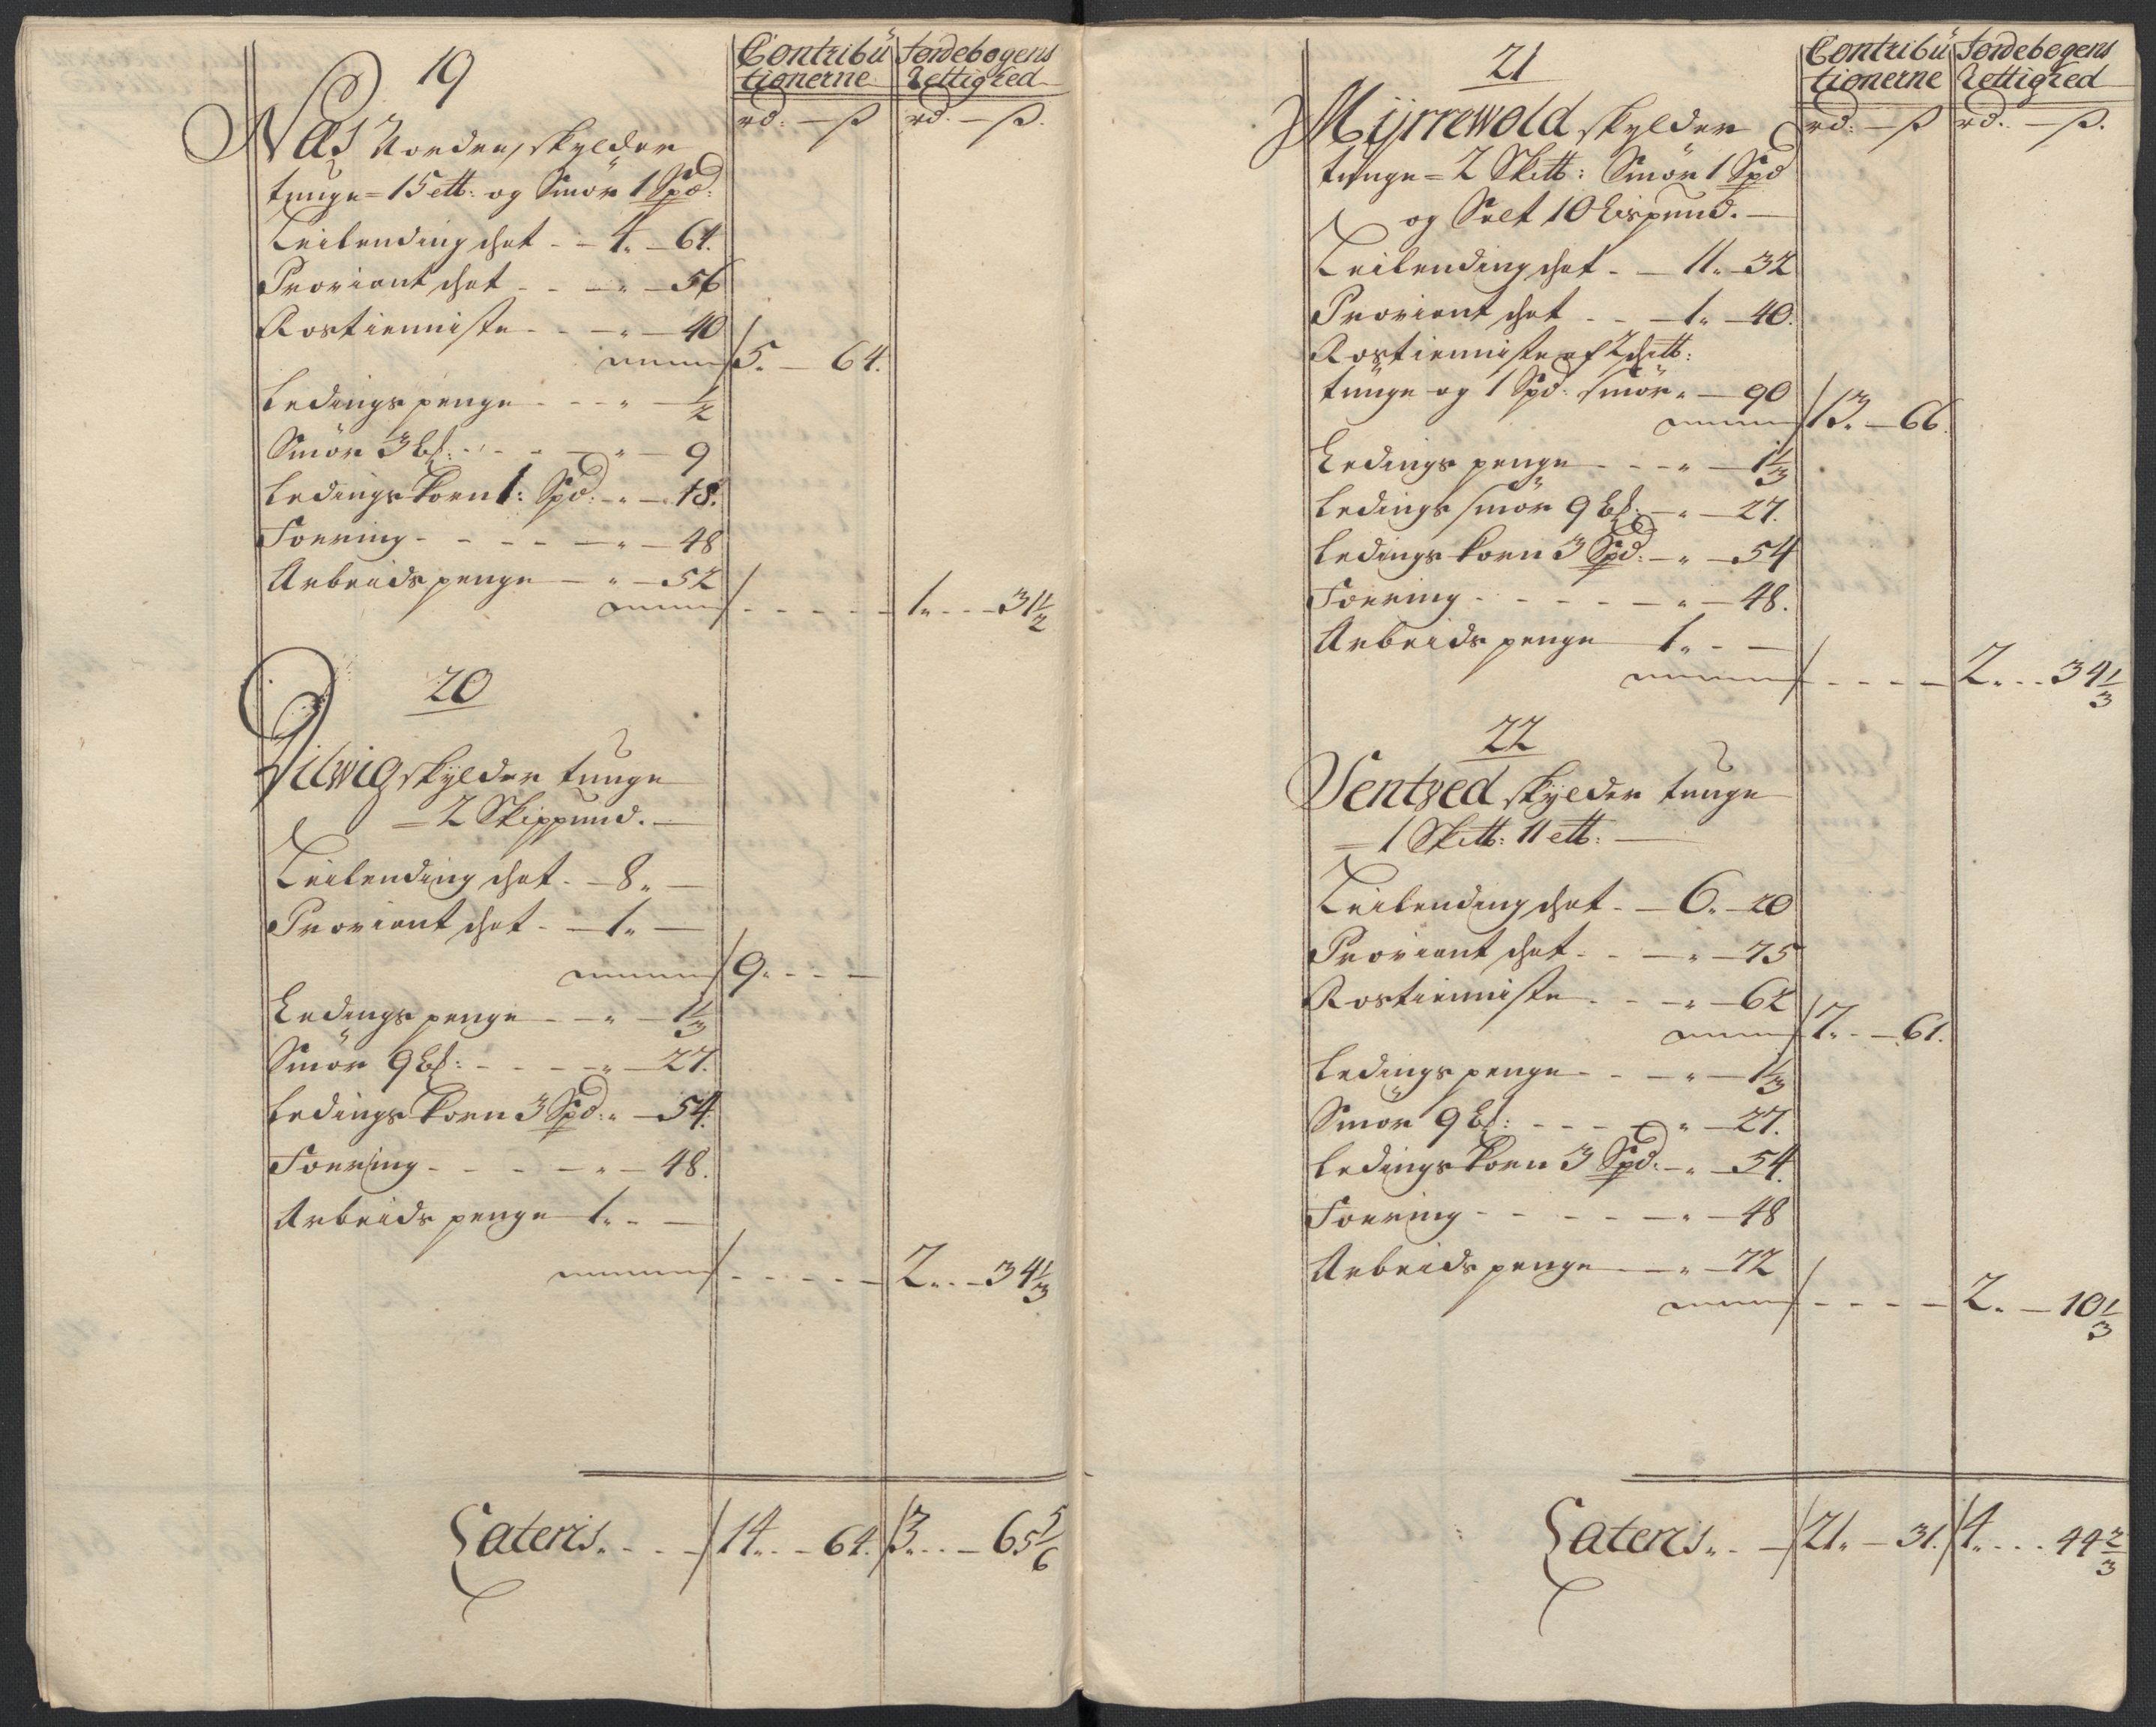 19
Contribü
tionerne
Jordebogens
Rettighed
rd: — ß
rd. — ß.
Næs Nordre, skylder
tunge = 15 ett: og Smör 1 Spd:
Leilending schat - - 4 „ - 64.
Proviant schat - - — „ — 56
Rostienniste - - — „ — 40
5. — 64.
Ledings penge - - - „ — 1/2
Smör 3 bs: - - - — „ — 9
Ledings Korn 1: Spd: - „ — 18.
Foering - - - - — „ — 48
Arbeids penge — „ — 52
1 „ - - - 31 1/2
20
Dilwig skylder tunge
= 2 Skippund. —
Leilending schat - — 8 „ —
Proviant schat - — 1 „ —
9 „ - - —
Ledings penge - — „ — 1 1/3
Smör 9 bs: - - - - „ — 27.
Ledings Korn 3 Spd: „ — 54.
Foering - - - - — „ — 48.
Arbeids penge — 1 „ - —
2 „ - - 34 1/3
Lateris. - - - 14 „ - - 64. 3 „ - - - 65 5/6
21
Contribü
tionerne
Jordebogens
Rettighed
rd: — ß
rd. — ß.
Myrrewold skylder
tunge = 2 Skitt: Smör 1 Spd
og Salt 10 Lispund. —
Leilending schat - — 11 „ - 32
Proviant schat - - — 1 „ — 40.
Rostienniste af 2 schitt:
tunge og 1 Spd: smör „ — 90
13 „ — 66.
Ledings penge - - - „ — 1 1/3
Ledings smör 9 bs: — „ — 27.
Ledings Korn 3 Spd: — „ — 54
Foering - - - - - — „ — 48.
Arbeids penge 1 „ - —
2 „ - - 34 1/3
22
Sentzed skylder tunge
= 1 Skitt: 11 ett: —
Leilending schat - — 6 „ — 20
Proviant schat - - — „ — 75
Rostienniste - - — „ — 62
7 „ - — 61.
Ledings penge - - — „ — 1 1/3
Smör 9 bs: - - - — „ — 27.
Ledings Korn 3 Spd: — „ — 54.
Foering - - - - - — „ — 48
Arbeids penge — — „ — 72
2 „ — 10 1/3
Lateris „ - — 21 „ — 31. 4 „ - - - 44 2/3